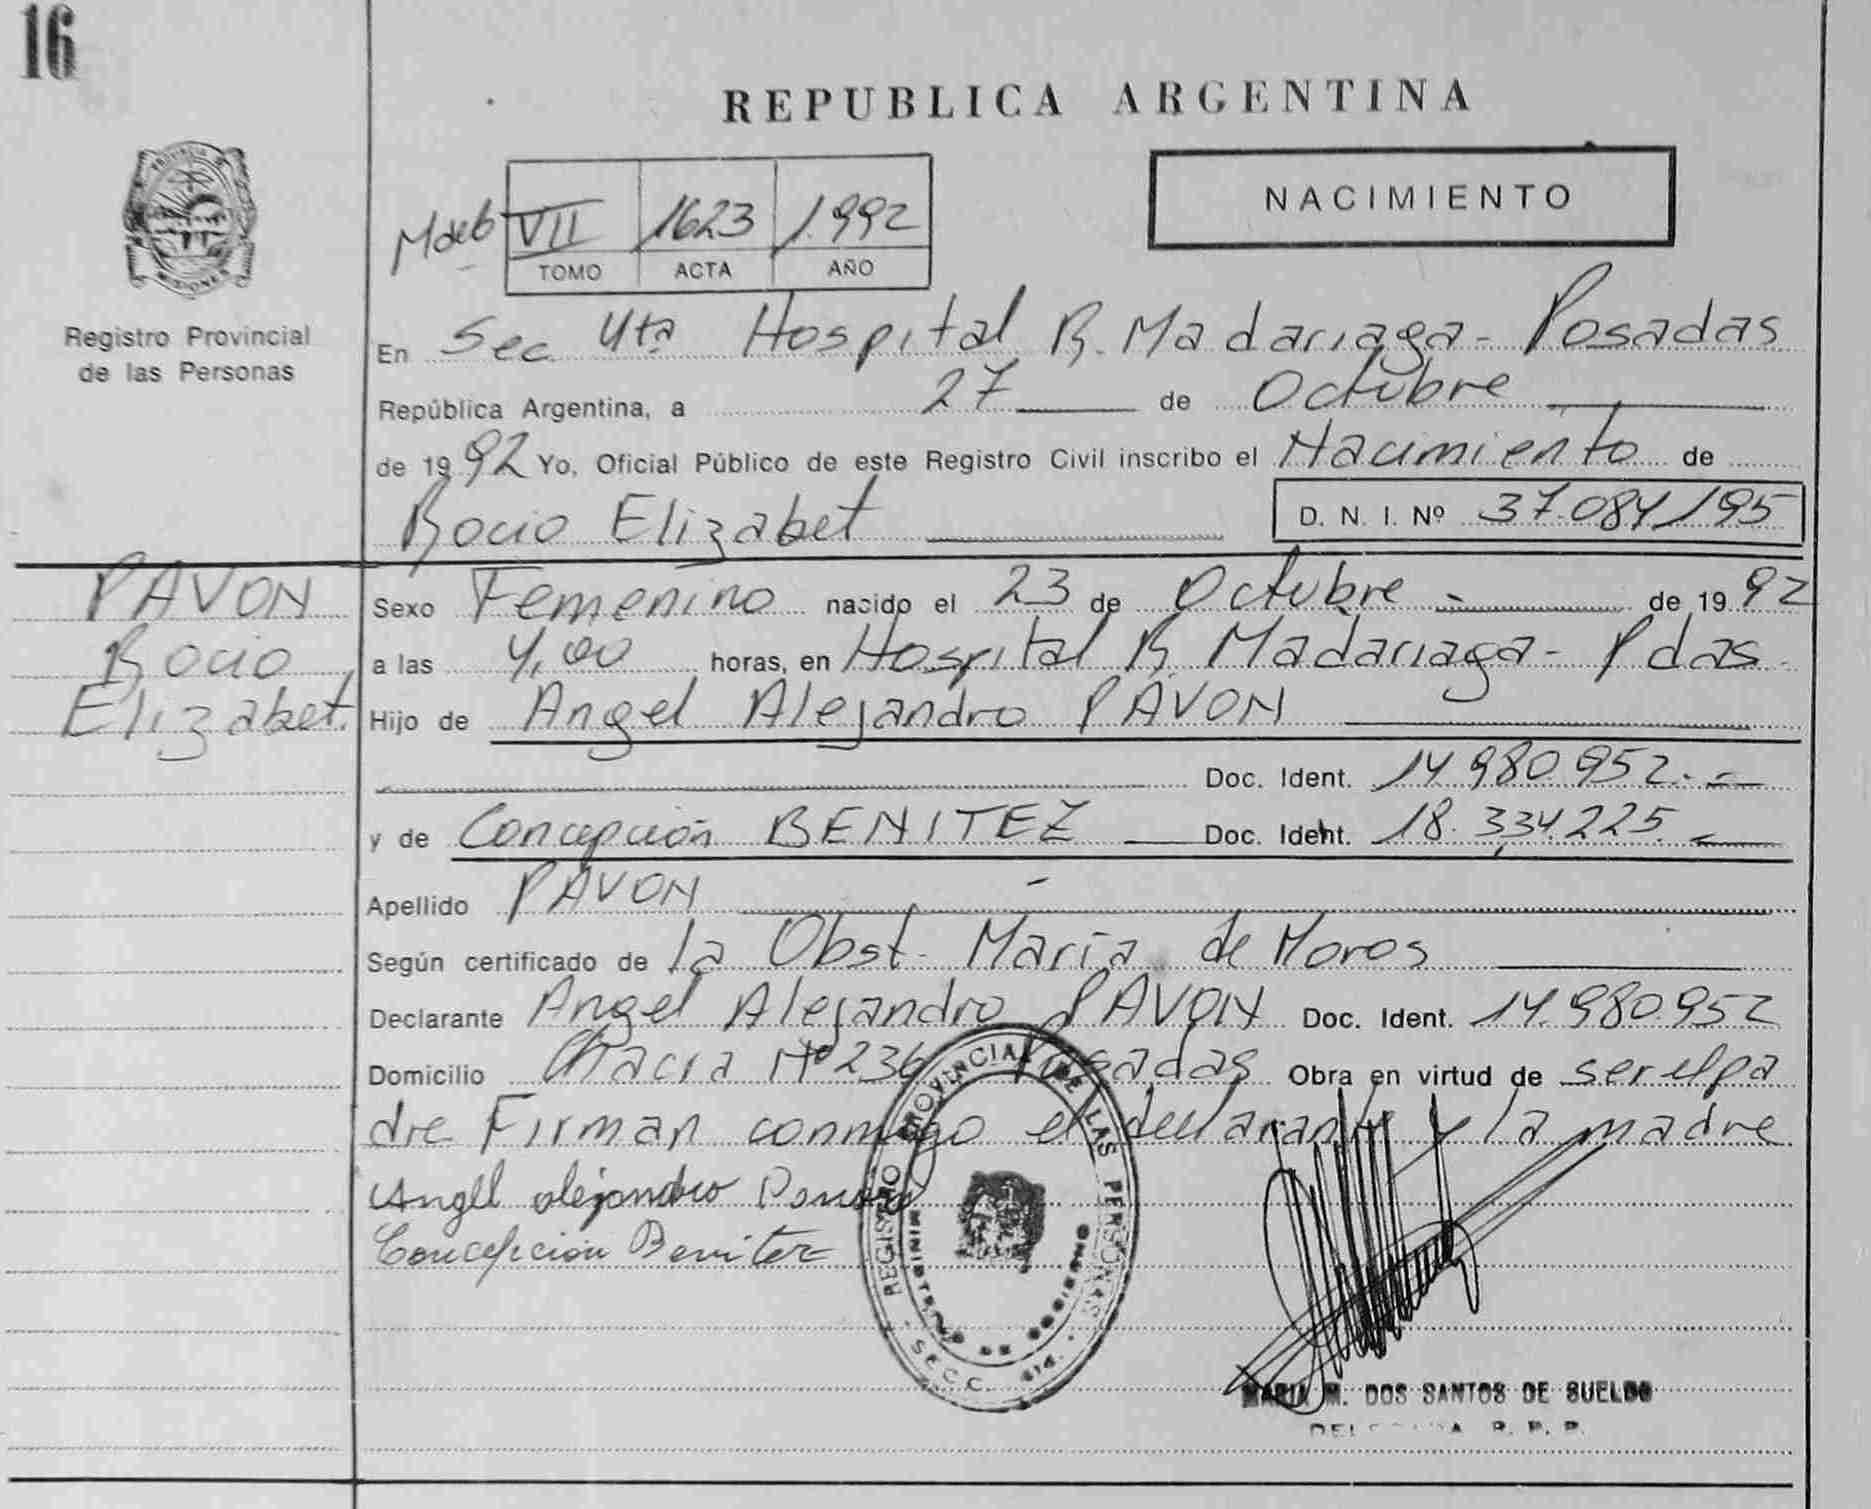 16
REPUBLICA ARGENTINA
NACIMIENTO
VII 1623 1.992
TOMO ACTA AÑO
PROVINCIA DE MISIONES
Registro Provincial
de las Personas
En Sec 4ta Hospital R. Madariaga - Posadas
República Argentina, a 27 de Octubre
de 1992 Yo, Oficial Público de este Registro Civil inscribo el Nacimiento de
Rocio Elizabet D. N. I. Nº 37.084195
PAVON
Rocio
Elizabet.
Sexo Femenino nacido el 23 de Octubre - de 1992
a las 4,00 horas, en Hospital R. Madariaga - Pdas.
Hijo de Angel Alejandro PAVON
Doc. Ident. 14.980.952.-
y de Concepción BENITEZ Doc. Ident. 18.334.225.
Apellido PAVON
Según certificado de la Obst. María de Moros
Declarante Angel Alejandro PAVON Doc. Ident. 14.980952
Domicilio Chacra Nº 236 Posadas Obra en virtud de ser el pa
dre Firman conmigo el declarante y la madre
Angel alejandro Pavon
Concepción Benitez
REGISTRO PROVINCIAL DE LAS PERSONAS
MINISTERIO DE GOBIERNO
SECC. 4ta.
MARIA M. DOS SANTOS DE SUELDO
R. P. P.